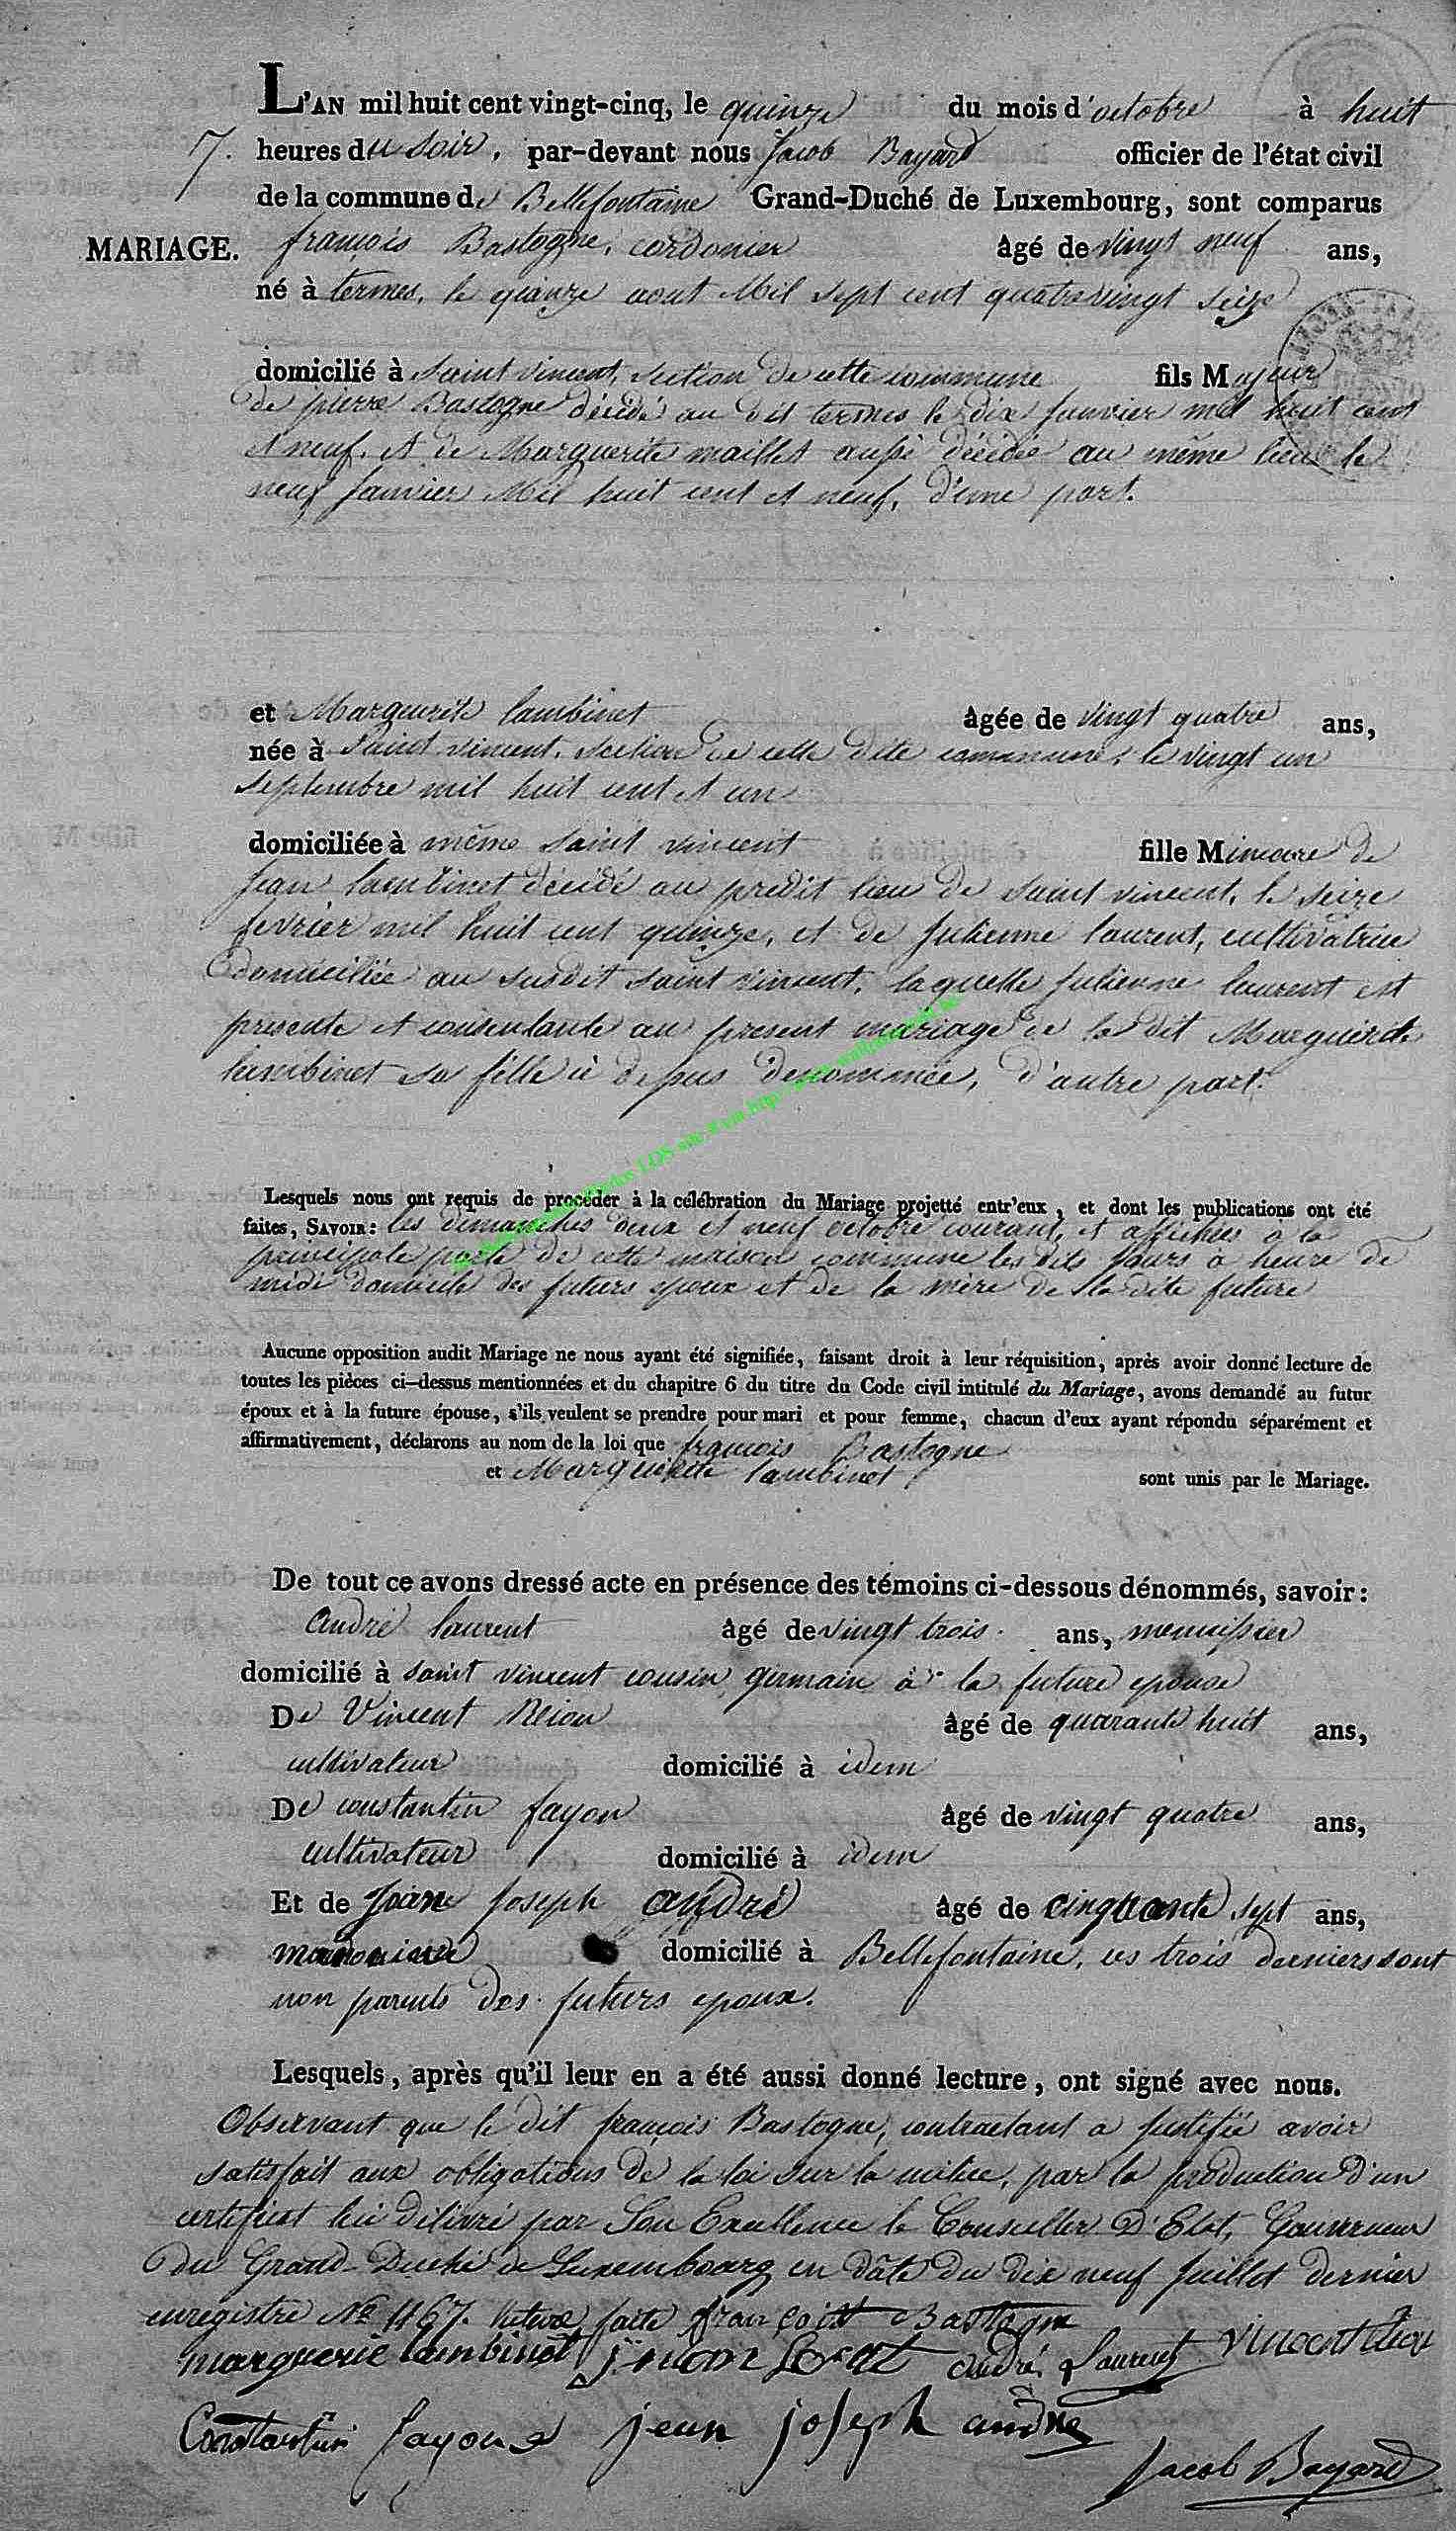 L'AN mil huit cent vingt-cinq, le quinze du mois d'octobre à huit
7. heures du soir, par-devant nous Jacob Bayard officier de l'état civil
de la commune de Bellefontaine Grand-Duché de Luxembourg, sont comparus
MARIAGE. françois Bastogne, cordonier âgé de vingt neuf ans,
né à termes, le quinze aout Mil sept cent quatrevingt seize
domicilié à Saint vincent, section de cette commune fils Majeur
de pierre Bastogne décédé au dit termes le dix janvier mil huit cent
et neuf, et de Marguerite maillet aussi décédée au même lieu le
neuf janvier Mil huit cent et neuf, d'une part.
et Marguerite lambinet âgée de vingt quatre ans,
née à Saint vincent, section de cette dite commune, le vingt un
septembre mil huit cent et un
domiciliée à même saint vincent fille Mineure de
jean lambinet décédé au predit lieu de saint vincent, le seize
fevrier mil huit cent quinze, et de julienne laurent, cultivatrice
domiciliée au susdit saint vincent, laquelle julienne laurent est
presente et consentante au present mariage de la dit Marguerite
lambinet sa fille ci dessus denommée, d'autre part.
Lesquels nous ont requis de procéder à la célébration du Mariage projetté entr'eux, et dont les publications ont été
faites, SAVOIR: les dimanches deux et neuf octobre courant, et affichées à la
principale porte de cette maison commune les dits jours à heure de
midi domicile des futurs epoux et de la mère de la dite future
Aucune opposition audit Mariage ne nous ayant été signifiée, faisant droit à leur réquisition, après avoir donné lecture de
toutes les pièces ci-dessus mentionnées et du chapitre 6 du titre du Code civil intitulé du Mariage, avons demandé au futur
époux et à la future épouse, s'ils veulent se prendre pour mari et pour femme, chacun d'eux ayant répondu séparément et
affirmativement, déclarons au nom de la loi que françois Bastogne
et Marguerite lambinet sont unis par le Mariage.
De tout ce avons dressé acte en présence des témoins ci-dessous dénommés, savoir:
André laurent âgé de vingt trois ans, menuissier
domicilié à saint vincent cousin germain à la future epouse
De Vincent âgé de quarante huit ans,
cultivateur domicilié à idem
De constantin fayon âgé de vingt quatre ans,
cultivateur domicilié à idem
Et de jean joseph andré âgé de cinquante sept ans,
domicilié à Bellefontaine, ces trois derniers sont
non parents des futurs epoux.
Lesquels, après qu'il leur en a été aussi donné lecture, ont signé avec nous.
Observant que le dit françois Bastogne, contractant a justifié avoir
satisfait aux obligations de la loi sur la milice, par la production d'un
certificat lui délivré par Son Excellence le Conseiller D'Etat, Gouverneur
du Grand-Duché de Luxembourg en dâte du dix neuf juillet dernier
enregistré Nº 1167. faite françois Bastogne
marguerie lambinet andré Laurent vincent
Constantin fayon jean joseph andré
Jacob Bayard